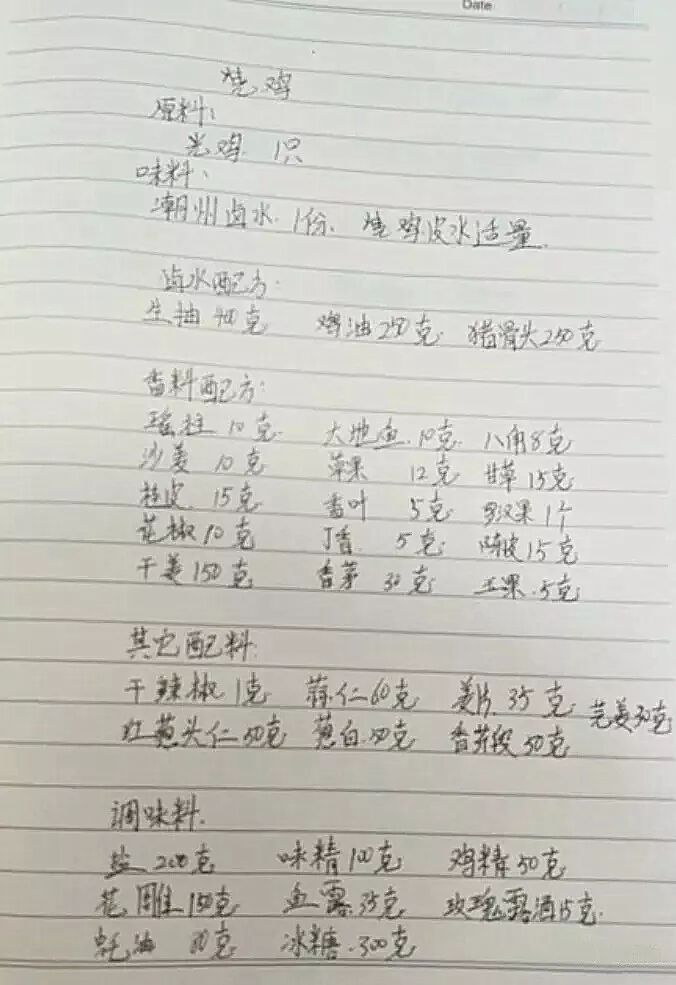 Date
烧鸡
原料:
光鸡 1只
味料:
潮州卤水 1份、烧鸡皮水适量
卤水配方:
生抽 400克 鸡油 250克 猪骨头 250克
香料配方:
瑶柱 10克 大地鱼 10克 八角 8克
沙姜 10克 草果 12克 甘草 15克
桂皮 15克 香叶 5克 罗汉果 1个
花椒 10克 丁香 5克 陈皮 15克
干姜 150克 香茅 30克 玉果 5克
其它配料:
干辣椒 1克 蒜仁 60克 姜片 35克 芫荽 30克
红葱头仁 50克 葱白 50克 香芹段 50克
调味料.
盐 200克 味精 100克 鸡精 50克
花雕 150克 鱼露 35克 玫瑰露酒 15克
蚝油 克 冰糖 300克